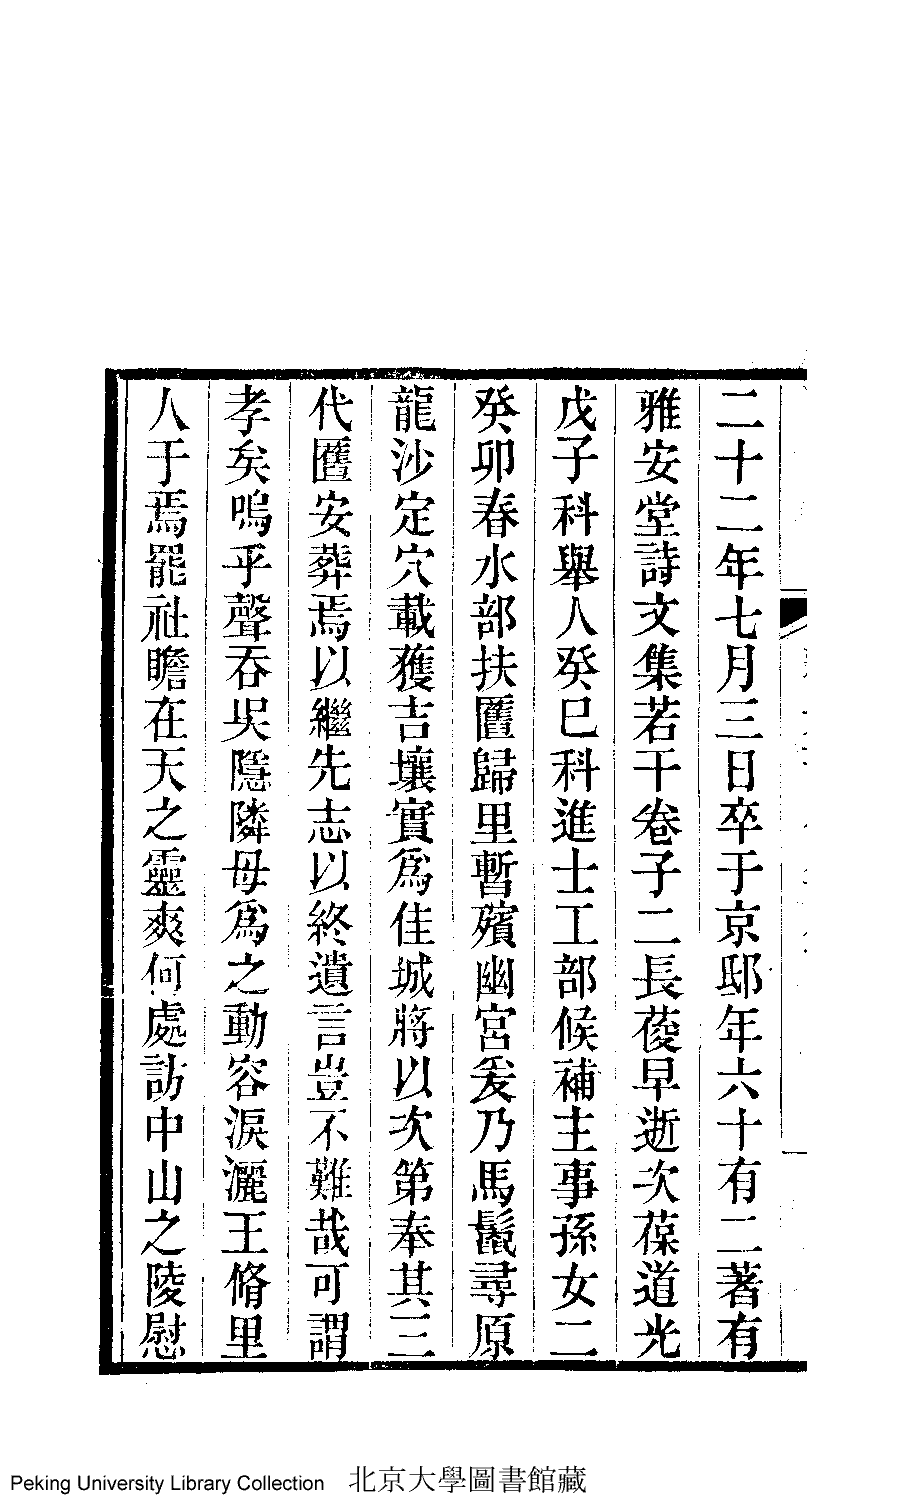 二十二年七月三日卒于京邸年六十有二著有
雅安堂詩文集若干卷子二長葰早逝次葆道光
戊子科舉人癸巳科進士工部候補主事孫女二
癸卯春水部扶匶歸里暫殯幽宮爰乃馬鬛尋原
龍沙定穴載獲吉壤實爲佳城將以次第奉其三
代匶安葬焉以繼先志以終遺言豈不難哉可謂
孝矣嗚乎聲吞吴隱隣母爲之動容淚灑王脩里
人于焉罷社瞻在天之靈爽何處訪中山之陵慰
Peking University Library Collection 北京大學圖書館藏